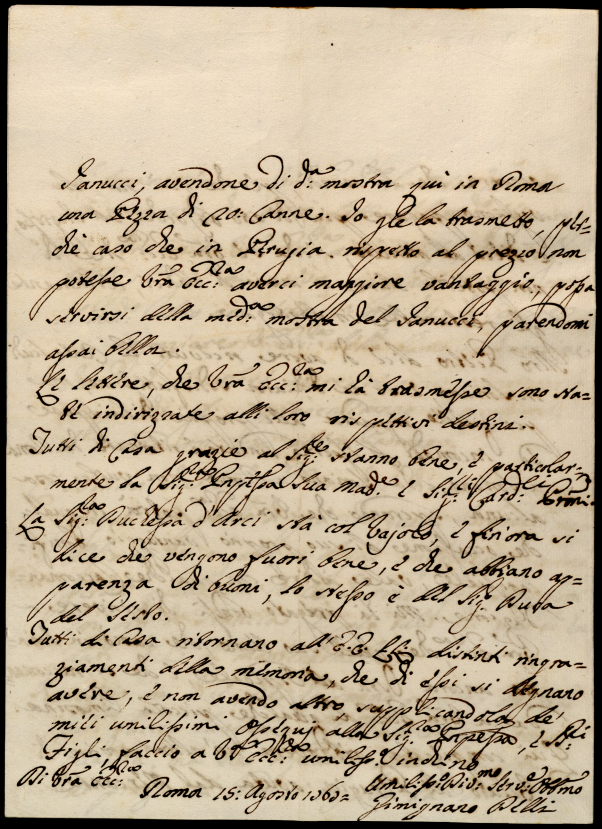 Janucci, avendone di d.a mostra quì in Roma
una Pezza di 20: Canne. Io gle la trasmetto, per=
chè caso che in Perugia rispetto al prezzo non
potesse Vra Ecc:za averci maggiore vantaggio, possa
servirsi della med:a mostra del Janucci, parendomi
assai bella.
Le lettere, che Vra Ecc:za mi hà trasmesse sono sta=
te indirizzate alli loro rispettivi destini.
Tutti di Casa grazie al Sig:re stanno bene, e particolar=
mente la Sig:ra Sua Mad:e e Sig: Card:le
La Sig:ra Duchessa d'Arci stà col Vajolo, e finora si
dice che vengono fuori bene, e che abbiano ap=
parenza di buoni, lo stesso è del Sig: Duca
del Sesto.
Tutti di Casa ritornano all' E.E. distinti ringra=
ziamenti della memoria, che di essi si degnano
avere, e non avendo altro, supplicandola de'
miei umilissimi ossequj alla Sig:ra e SS:ri
Figli faccio a Vra Ecc:za umiliss:o inchino
Di Vra Ecc:za
Roma 15: Agosto
Umiliss:o Div:mo Serv:e Obb:mo
Gimignano Belli